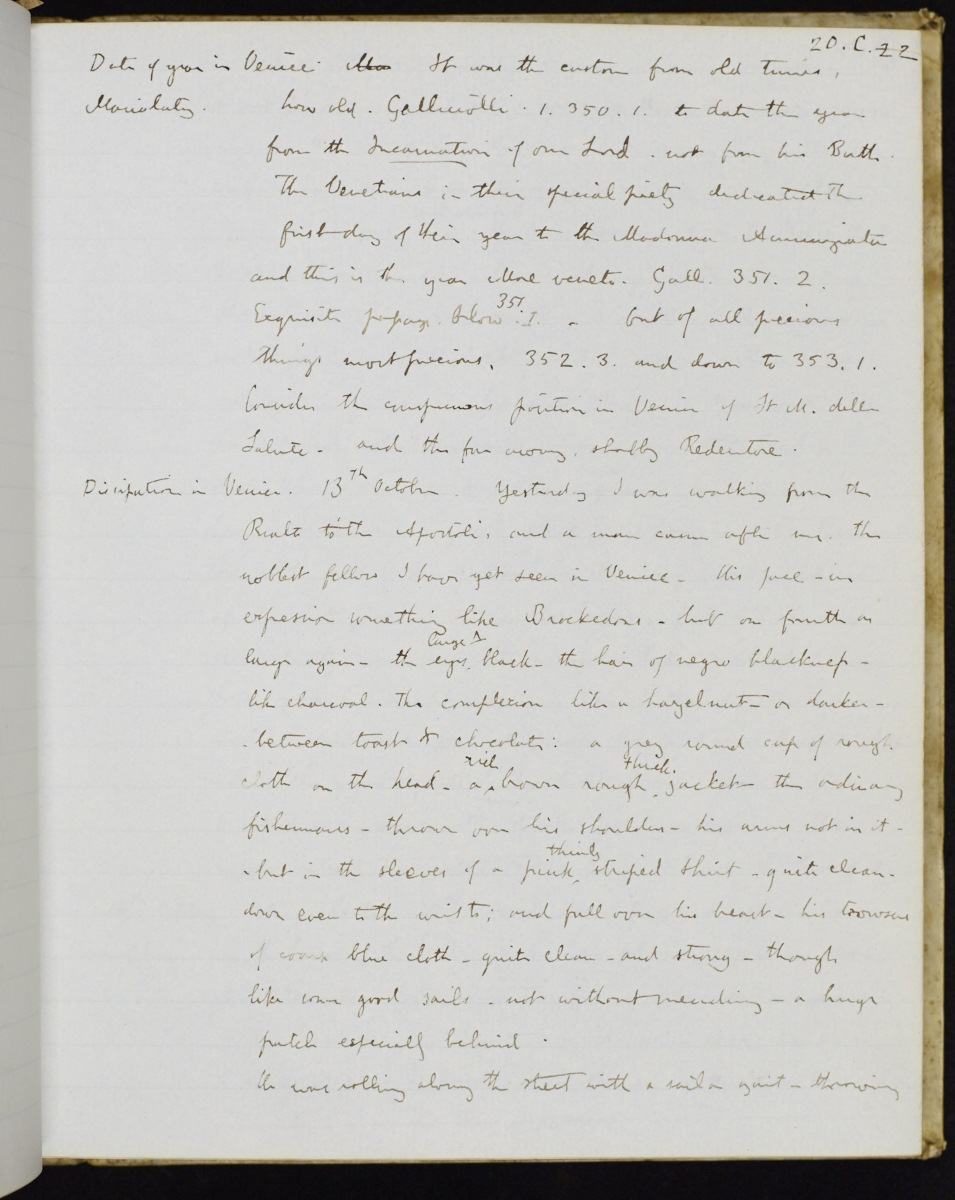 20. C. 22
Date of year in Venice. It was the custom from old times,
Mariolatry. how old. Galliciolli. 1. 350. 1. to date the year
from the Incarnation of our Lord. not from his Birth.
The Venetians in their special piety dedicated the
first day of their year to the Madonna Annunziata
and this is the year More veneto. Gall. 351. 2.
Exquisite passage. below. 351. 1. - but of all precious
things most precious, 352. 3. and down to 353. 1.
Consider the conspicuous position in Venice of St M. della
Salute - and the far away, shabby Redentore.
Dissipation in Venice. 13th October. Yesterday I was walking from the
Rialto to the Apostoli, and a man came after me. the
noblest fellow I have yet seen in Venice - His face - in
expression something like Brockedons - but one fourth as
large again - the large eyes black - the hair of negro blackness -
like charcoal. the complexion like a hazelnut - or darker -
- between toast & chocolate: a grey round cap of rough
cloth on the head - a rich brown rough thick jacket - the ordinary
fishermans - thrown over his shoulders - his arms not in it -
- but in the sleeves of a pink thinly striped shirt - quite clean -
down even to the wrists; and full over his breast - his trowsers
of coarse blue cloth - quite clean - and strong - though
like some good sails - not without mending - a huge
patch especially behind.
He was rolling along the street with a sailor gait - throwing